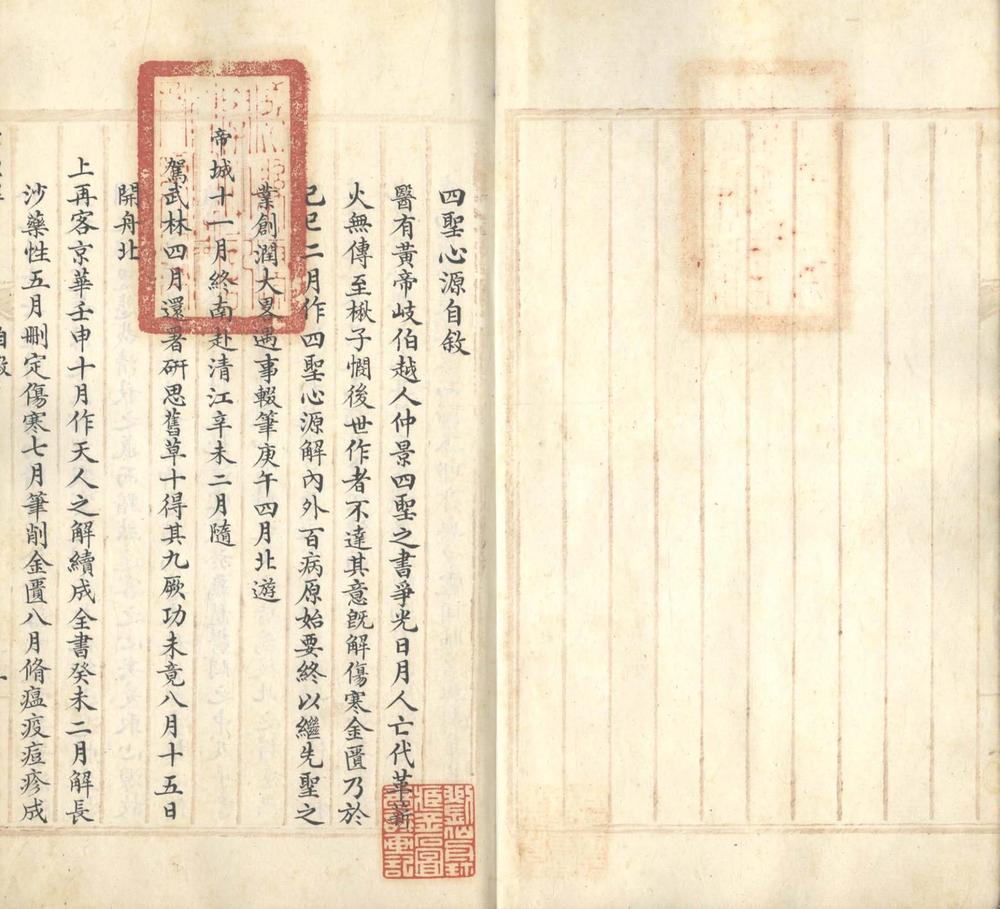 四聖心源自敘
醫有黃帝岐伯越人仲景四聖之書爭光日月人亡代革薪
火無傳至楸子憫後世作者不達其意既解傷寒金匱乃於
己巳二月作四聖心源解內外百病原始要終以繼先聖之
業創潤大畧遇事輟筆庚午四月北遊
帝城十一月終南赴清江辛未二月隨
駕武林四月還署研思舊草十得其九厥功未竟八月十五日
開舟北
上再客京華壬申十月作天人之解續成全書癸未二月解長
沙藥性五月刪定傷寒七月筆削金匱八月脩瘟疫痘疹成
自敘